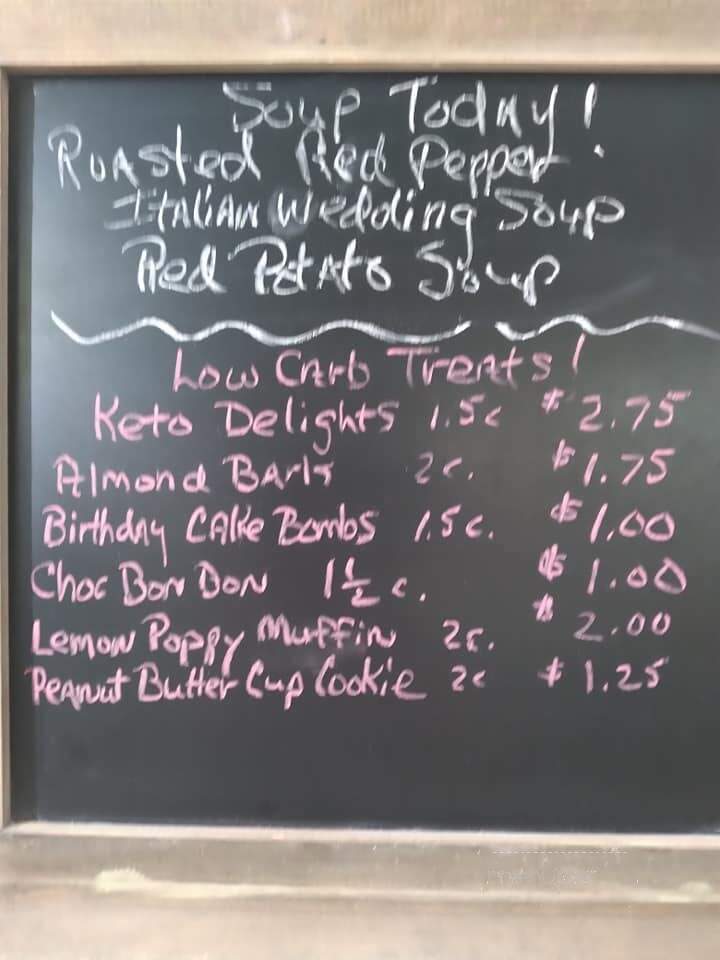 Soup Today!
Roasted Red Pepper
Italian Wedding Soup
Red Potato Soup
Low Carb Treats!
Keto Delights 1.5c $2.75
Almond Bark 2c. $1.75
Birthday Cake Bombs 1.5c. $1.00
Choc Bon Bon 1 1/2 c. $1.00
Lemon Poppy Muffin 2c. $2.00
Peanut Butter Cup Cookie 2c $1.25